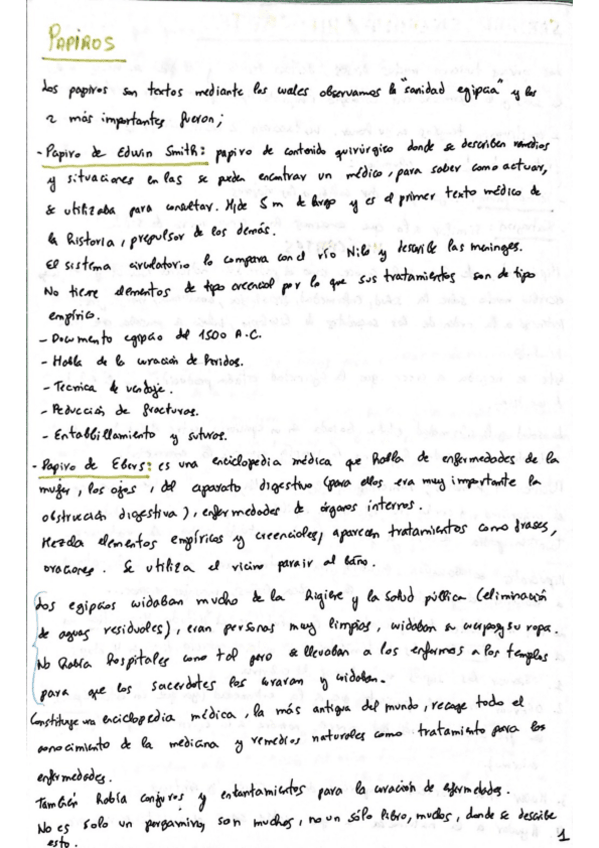 PAPIROS
Los papiros son textos mediante los cuales observamos la sanidad egipcia" y los
2 más importantes fueron;
- Papiro de Edwin Smith: papiro de contenido quirúrgico donde se describen remedios
y situaciones en las se pueden encontrar un médico, para saber como actuar,
se utilizaba para consultar. Mide 5 m de largo y es el primer texto médico de
la historia, prepulsor de los demás.
El sistema circulatorio lo compara con el río Nilo y describe las meninges.
No tiene elementos de tipo creencial por lo que sus tratamientos son de tipo
empírico.
- Documento egipcio del 1500 A.C.
- Habla de la curación de heridas.
- Tecnica de vendaje.
- Reducción de fracturas.
- Entablillamiento y suturas.
- Papiro de Ebers: es una enciclopedia médica que habla de enfermedades de la
mujer, los ojos, del aparato digestivo (para ellos era muy importante la
obstrucción digestiva), enfermedades de órganos internos.
Mezcla elementos empíricos y creenciales, aparecen tratamientos como frases,
oraciones. Se utiliza el ricino para ir al baño.
Los egipcios cuidaban mucho de la higiene y la salud pública (eliminación
de aguas residuales), eran personas muy limpias, cuidaban su cuerpo y su ropa.
No había hospitales como tal pero se llevaban a los enfermos a los templos
para que los sacerdotes los curaran y cuidaban.
Constituye una enciclopedia médica, la más antigua del mundo, recoge todo el
conocimiento de la medicina y remedios naturales como tratamiento para las
enfermedades.
También había conjuros y entantamientos para la curación de enfermedades.
No es solo un pergamino, son muchos, no un sólo libro, muchos, donde se describe
esto.
1